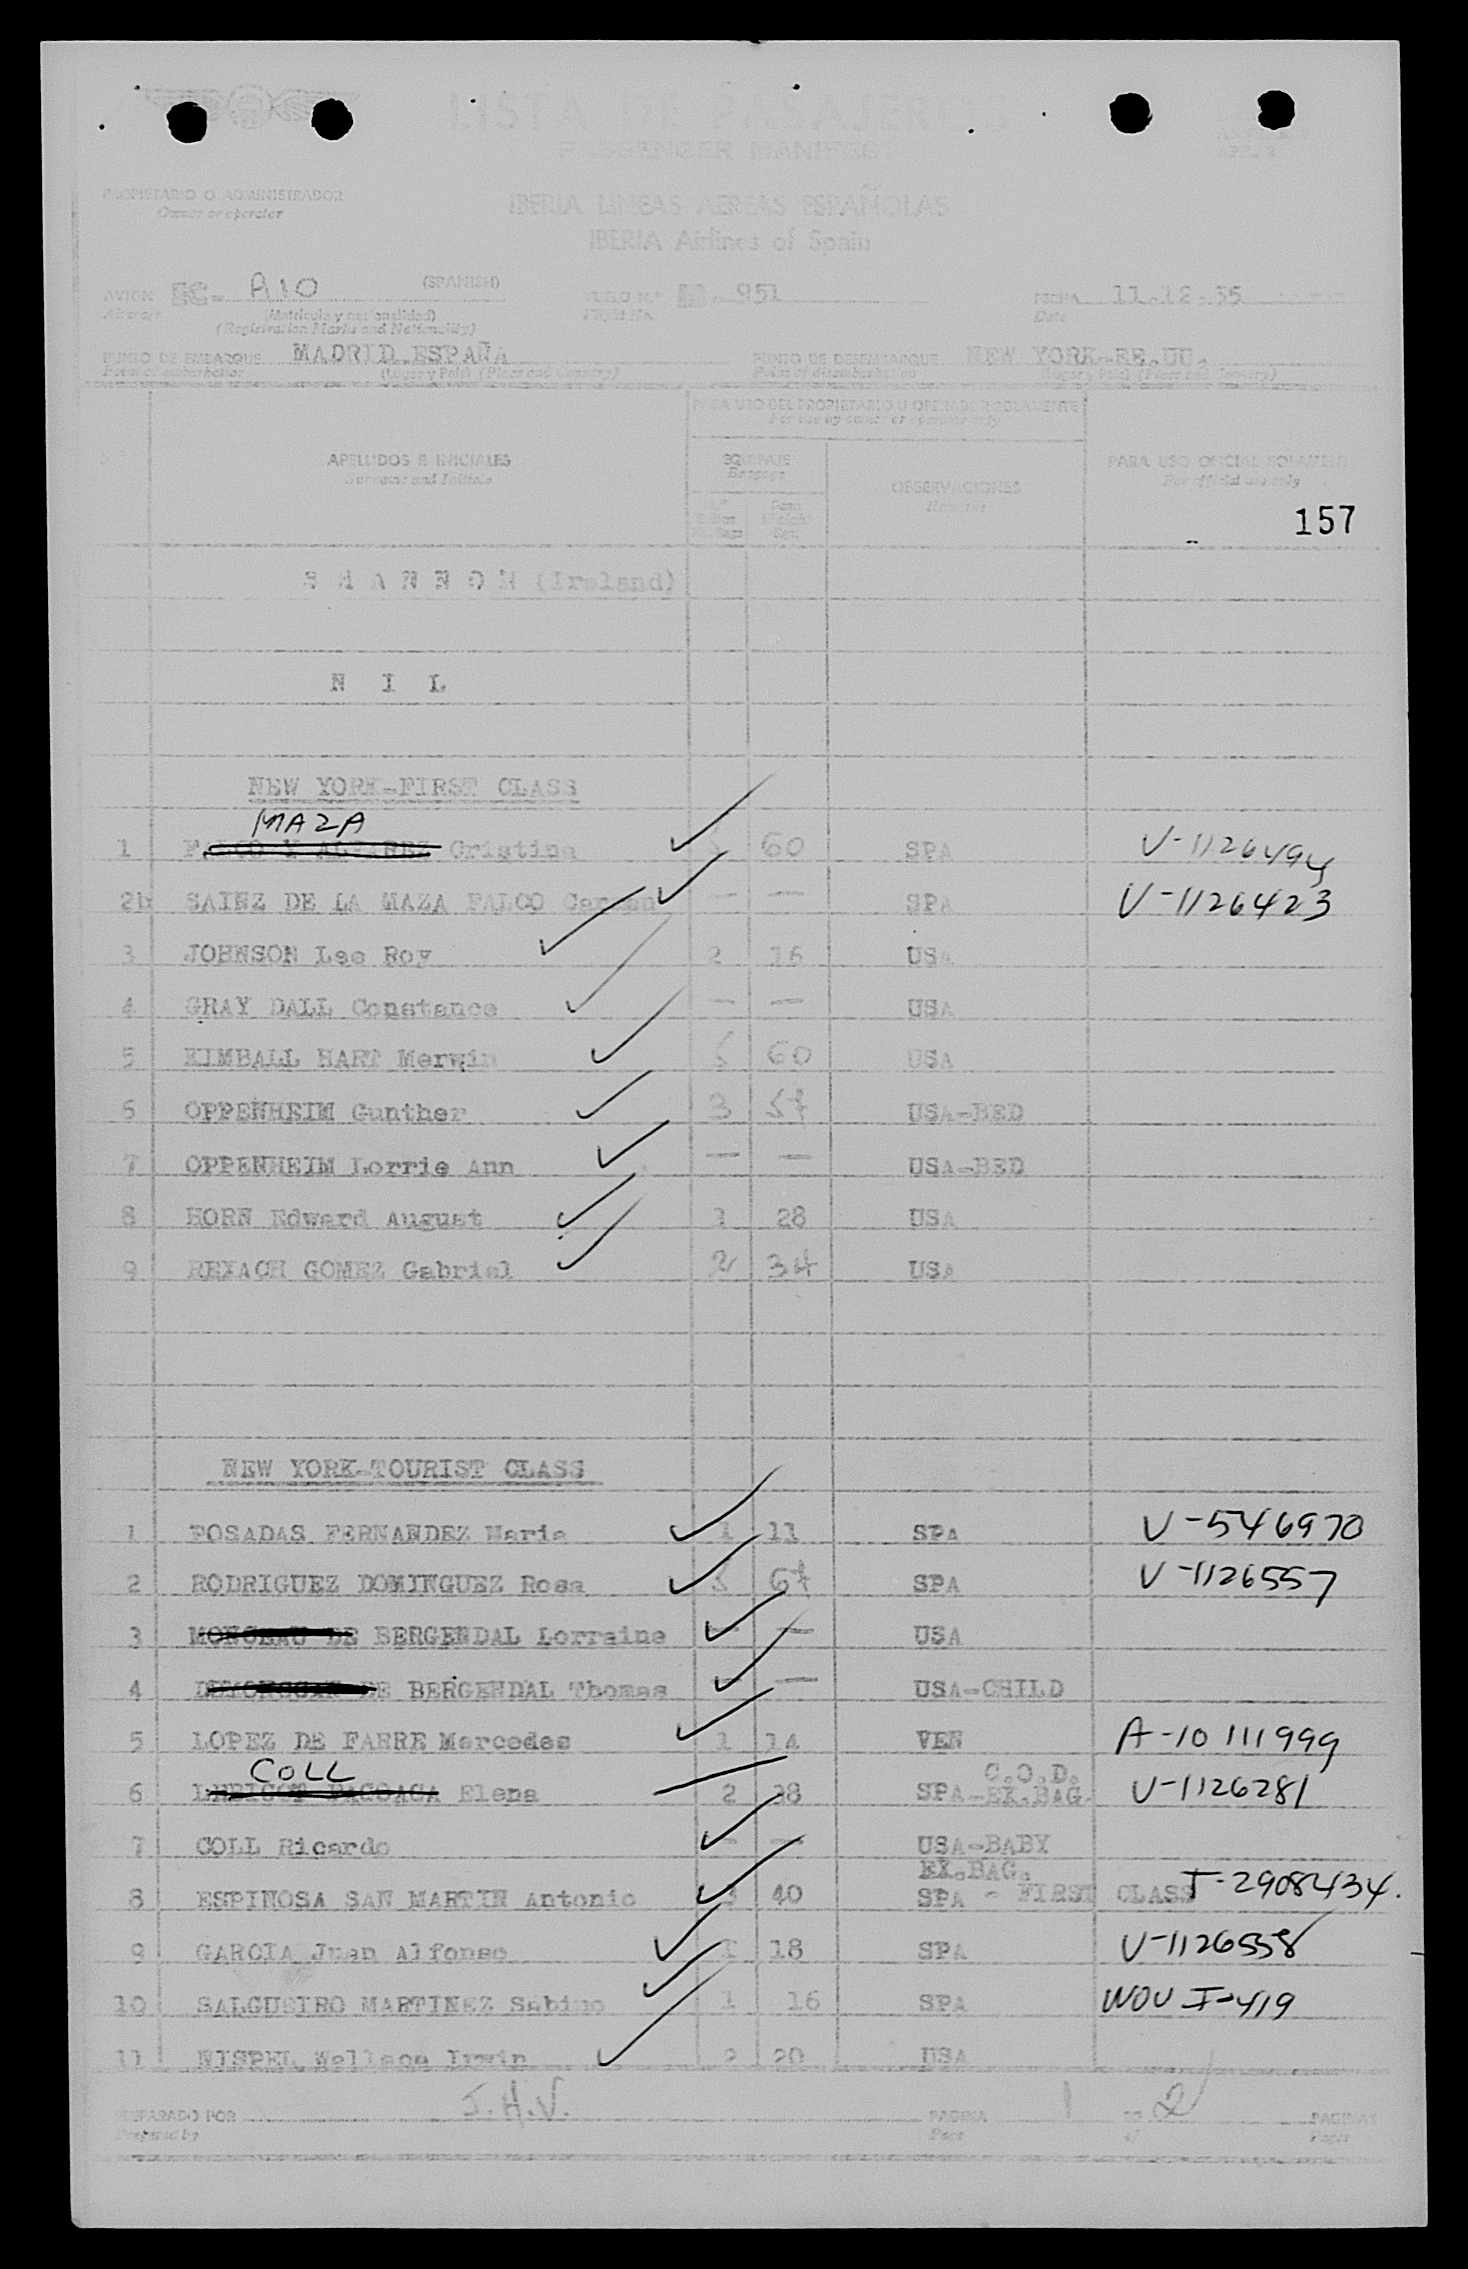 LISTA DE PASAJEROS
PASSENGER MANIFEST
PROPIETARIO O ADMINISTRADOR
Owner or operator
IBERIA LINEAS AEREAS ESPAÑOLAS
IBERIA Airlines of Spain
AVION EC- AIO (SPANISH)
Aircraft (Matrícula y nacionalidad)
(Registration Marks and Nationality)
VUELO N.º 951
Flight No.
FECHA 11.12.55
Date
PUNTO DE EMBARQUE MADRID ESPAÑA
Point of embarkation (Lugar y País) (Place and Country)
PUNTO DE DESEMBARQUE NEW YORK-EE.UU.
Point of disembarkation (Lugar y País) (Place and Country)
PARA USO DEL PROPIETARIO U OPERADOR SOLAMENTE
For use by owner or operator only
APELLIDOS E INICIALES
Surname and Initials
EQUIPAJE
Baggage
OBSERVACIONES
Remarks
PARA USO OFICIAL SOLAMENTE
For official use only
157
SHANNON (Ireland)
N I L
NEW YORK-FIRST CLASS
MAZA
1 FALCO Y ALVAREZ Cristina 60 SPA V-1126494
2b SAINZ DE LA MAZA FALCO Carmen — — SPA V-1126423
3 JOHNSON Lee Roy 2 16 USA
4 GRAY DALL Constance — — USA
5 KIMBALL HART Merwin 5 60 USA
6 OPPENHEIM Gunther 3 57 USA-BED
7 OPPENHEIM Lorrie Ann — — USA-BED
8 HORN Edward August 1 28 USA
9 REXACH GOMEZ Gabriel 2 34 USA
NEW YORK-TOURIST CLASS
1 POSADAS FERNANDEZ Maria 1 11 SPA V-546970
2 RODRIGUEZ DOMINGUEZ Rosa 5 67 SPA V-1126557
3 MONCEAU DE BERGENDAL Lorraine — — USA
4 DE BERGENDAL Thomas — — USA-CHILD
5 LOPEZ DE FARRE Mercedes 1 14 VEN A-10 111 999
COLL
C.O.D.
6 Elena 2 38 SPA-EX.BAG. V-1126281
7 COLL Ricardo — — USA-BABY
EX.BAG.
8 ESPINOSA SAN MARTIN Antonio 3 40 SPA - FIRST CLASS T-2908434.
9 GARCIA Juan Alfonso 1 18 SPA V-1126558
10 SALGUEIRO MARTINEZ Sabino 1 16 SPA WOV I-419
11 NISPEL Wallace Irwin 2 20 USA
PREPARADO POR J.H.V.
Prepared by
PAGINA 1 DE 2 PAGINAS
Page of Pages